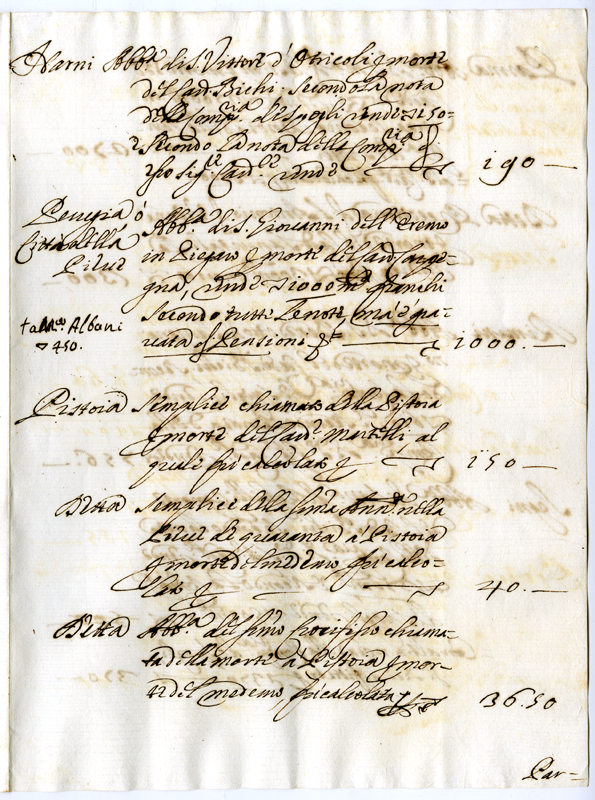 Narni Abb.ª di S. Vittore d'Otricoli p morte
del Card. Bichi. Secondo la nota
della Comp.ria de Spogli rende 150-
e Secondo la nota della Comp.ria
sig.re Card.le rende 190 —
Perugia ò Abb.ª di S. Giovanni dell'Eremo
Città della in Piegaro p morte del Card. Carpe-
Pieve gna, rende 1000
Secondo tutte le note, ma è gra-
vata di Pensioni 1000. —
Albani
450.
Pistoia Semplice chiamato della Pistoia
p morte del Card. Martelli, al
quale fù calcolato 150 —
Detta Semplice della Sma nella
Pieve di quaranta à Pistoia
p morte del medemo, fù calco-
lato 40. —
Detta Abb.ª del Smo Crocifisso chiama-
ta della morte à Pistoia p mor-
te del medemo, fù calcolata 36.50
Par-